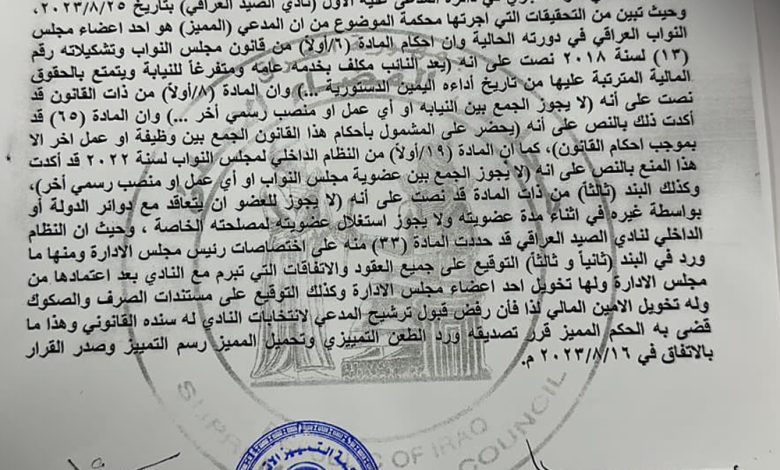 دائرة المدعى عليه الأول (نادي الصيد العراقي) بتاريخ ٢٠٢٣/٨/٢٥،
وحيث تبين من التحقيقات التي اجرتها محكمة الموضوع من ان المدعي (المميز) هو احد اعضاء مجلس
النواب العراقي في دورته الحالية وان احكام المادة (٦/أولاً) من قانون مجلس النواب وتشكيلاته رقم
(١٣) لسنة ٢٠١٨ نصت على انه (يعد النائب مكلف بخدمه عامه ومتفرغاً للنيابة ويتمتع بالحقوق
المالية المترتبة عليها من تاريخ أداءه اليمين الدستورية ...) وان المادة (٨/أولاً) من ذات القانون قد
نصت على أنه (لا يجوز الجمع بين النيابه او أي عمل او منصب رسمي أخر ...) وان المادة (٦٥) قد
أكدت ذلك بالنص على أنه (يحضر على المشمول بأحكام هذا القانون الجمع بين وظيفة او عمل اخر الا
بموجب احكام القانون)، كما ان المادة (١٩/أولاً) من النظام الداخلي لمجلس النواب لسنة ٢٠٢٢ قد أكدت
هذا المنع بالنص على انه (لا يجوز الجمع بين عضوية مجلس النواب او أي عمل او منصب رسمي أخر)،
وكذلك البند (ثالثاً) من ذات المادة قد نصت على أنه (لا يجوز للعضو ان يتعاقد مع دوائر الدولة أو
بواسطة غيره في اثناء مدة عضويته ولا يجوز استغلال عضويته لمصلحته الخاصة ، وحيث ان النظام
الداخلي لنادي الصيد العراقي قد حددت المادة (٣٣) منه على اختصاصات رئيس مجلس الادارة ومنها ما
ورد في البند (ثانياً و ثالثاً) التوقيع على جميع العقود والاتفاقات التي تبرم مع النادي بعد اعتمادها من
مجلس الادارة ولها تخويل احد اعضاء مجلس الادارة وكذلك التوقيع على مستندات الصرف والصكوك
وله تخويل الامين المالي لذا فأن رفض قبول ترشيح المدعي لانتخابات النادي له سنده القانوني وهذا ما
قضى به الحكم المميز قرر تصديقه ورد الطعن التمييزي وتحميل المميز رسم التمييز وصدر القرار
بالاتفاق في ٢٠٢٣/٨/١٦ م.
OF IRAQ
COUNCIL